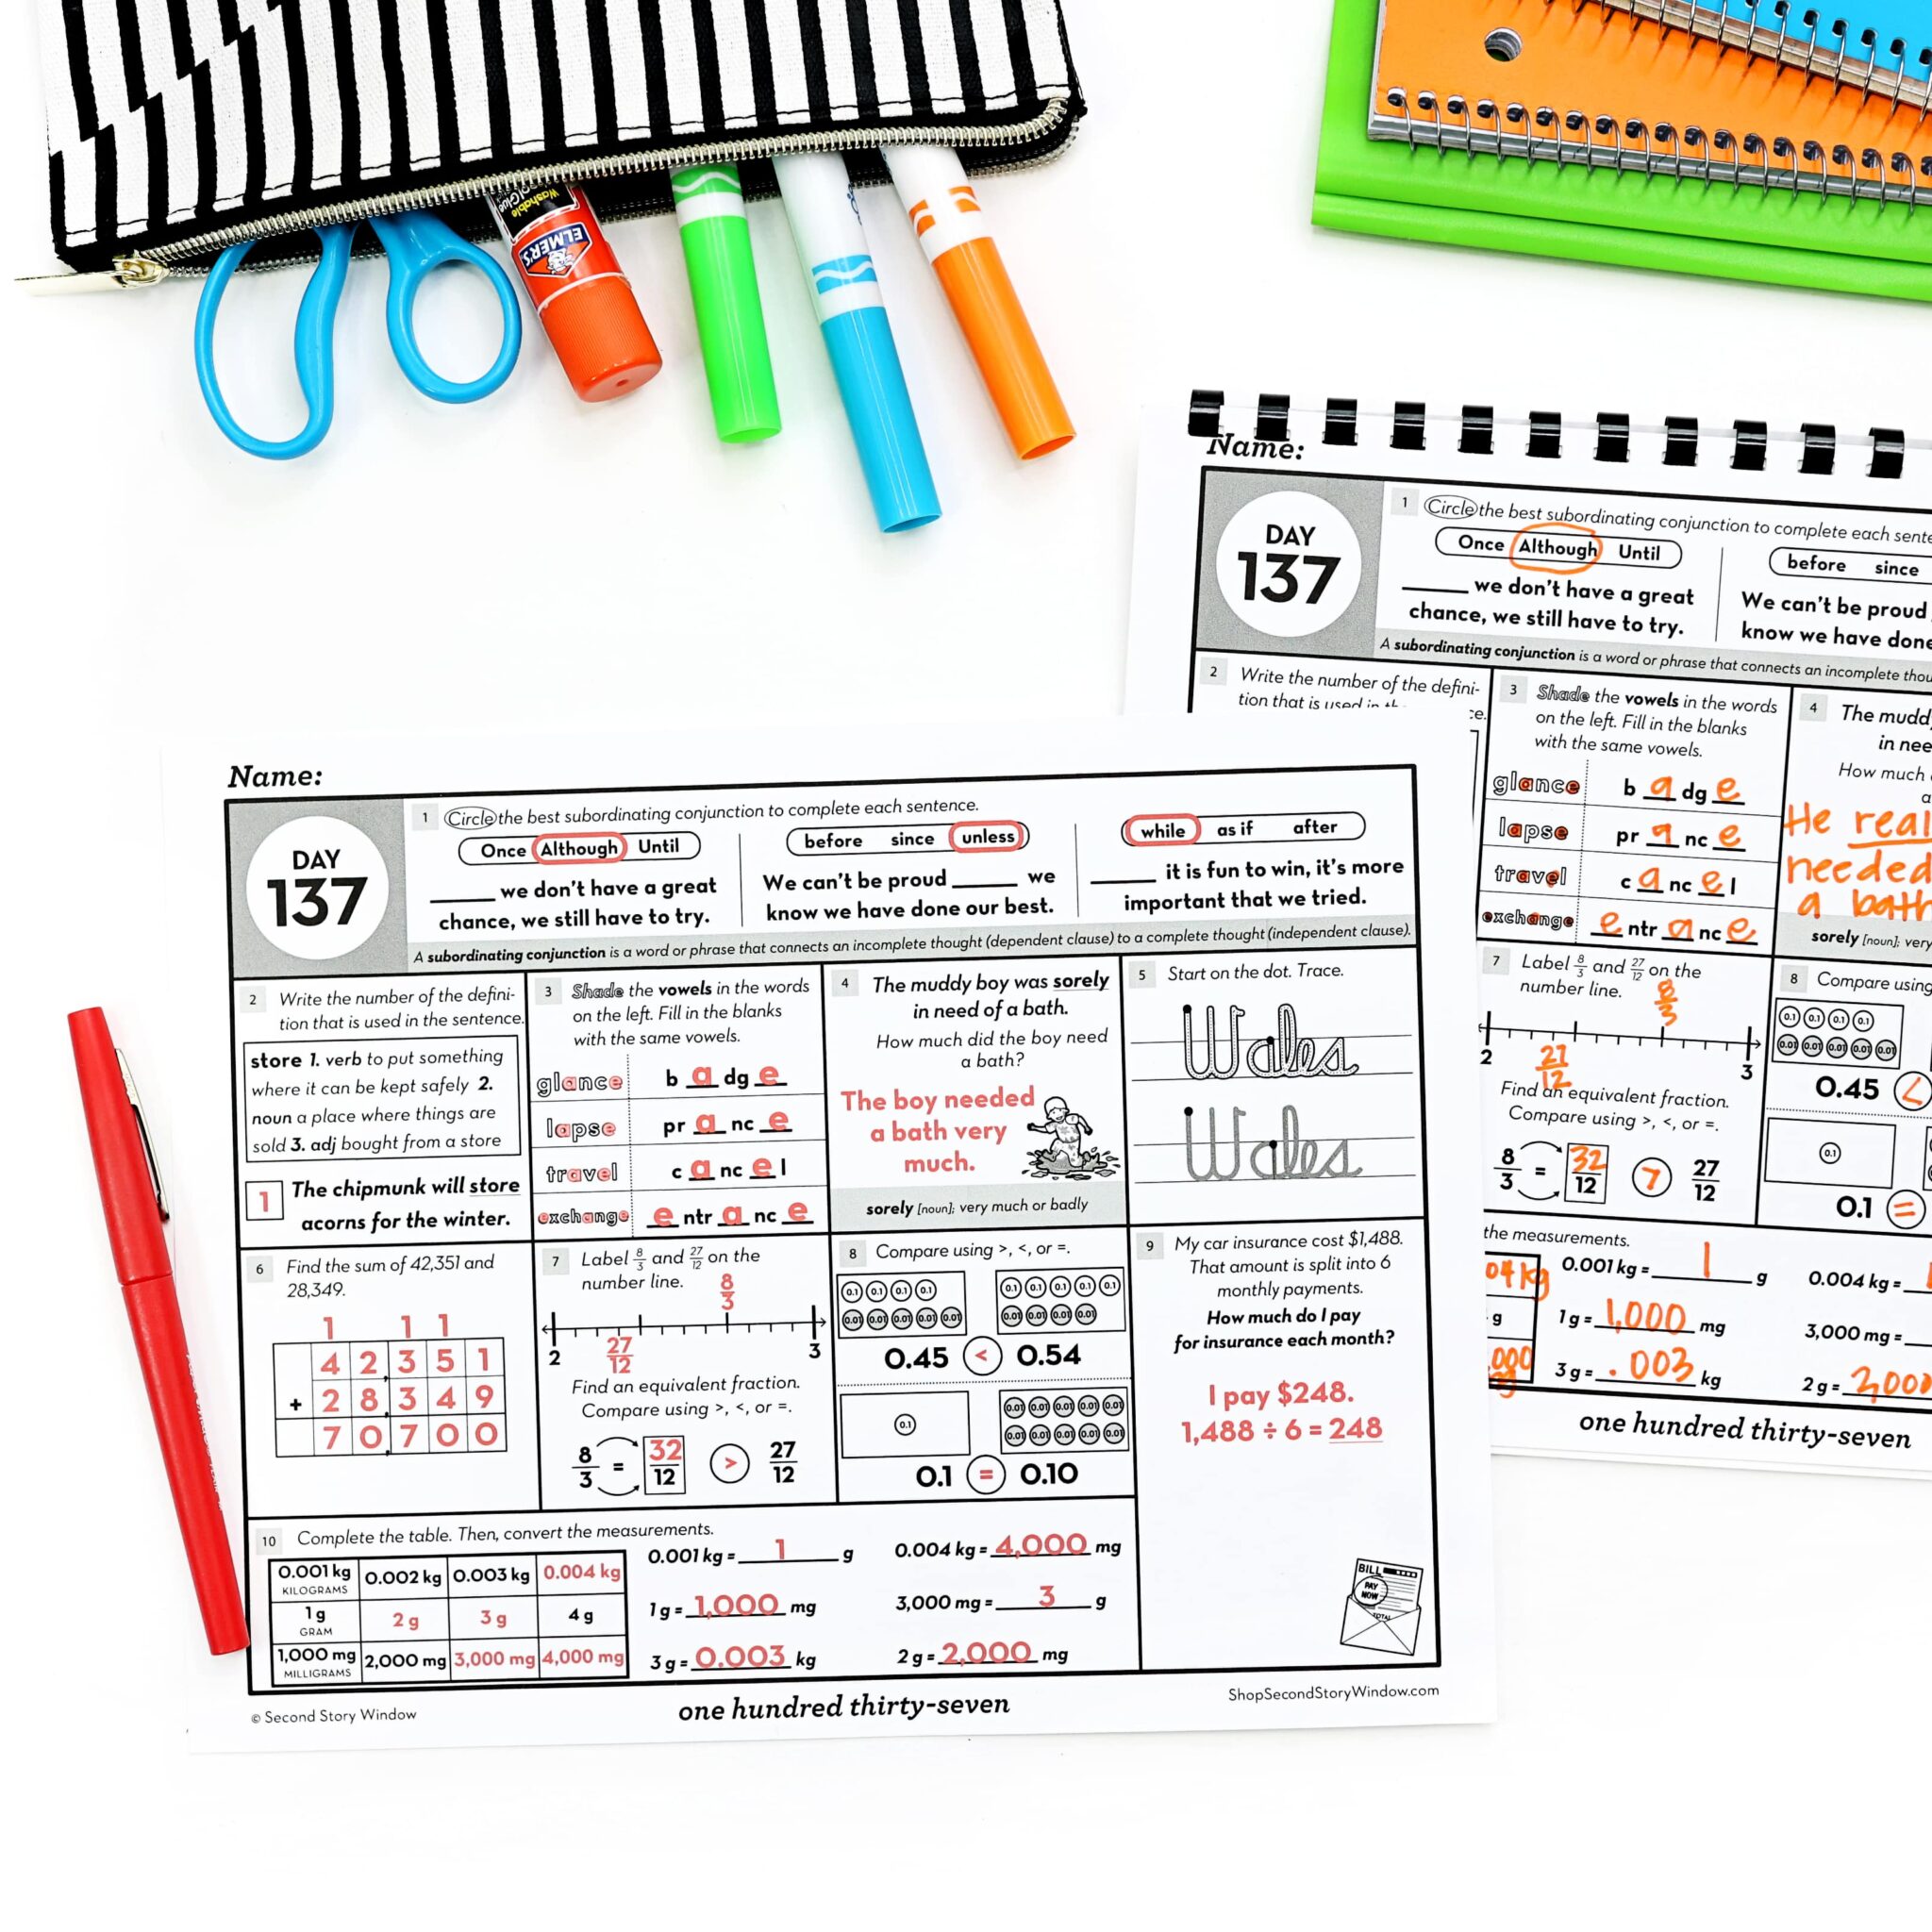 Washable
Glue
ELMER'S
Name:
DAY
137
1 Circle the best subordinating conjunction to complete each
Once Although Until
_____ we don't have a great
chance, we still have to try.
before since
We can't be proud
know we have done
A subordinating conjunction is a word or phrase that connects an incomplete
2 Write the number of the defini-
tion that is used in
3 Shade the vowels in the words
on the left. Fill in the blanks
with the same vowels.
glance b a dg e
lapse pr a nc e
travel c a nc e l
exchange e ntr a nc e
4 The muddy
How much
He
needed
a bath
sorely [noun]; very
7 Label 8/3 and 27/12 on the
number line.
8/3
2 3
27/12
Find an equivalent fraction.
Compare using >, <, or =.
8/3 = 32/12 > 27/12
8 Compare using
0.1 0.1 0.1 0.1
0.01 0.01 0.01 0.01 0.01
0.45 <
0.1
0.1 =
the measurements.
0.001 kg = 1 g
0.004 kg =
1 g = 1,000 mg
3,000 mg =
3 g = .003 kg
2 g =
one hundred thirty-seven
Name:
DAY
137
1 Circle the best subordinating conjunction to complete each sentence.
Once Although Until
_____ we don't have a great
chance, we still have to try.
before since unless
We can't be proud _____ we
know we have done our best.
while as if after
_____ it is fun to win, it's more
important that we tried.
A subordinating conjunction is a word or phrase that connects an incomplete thought (dependent clause) to a complete thought (independent clause).
2 Write the number of the defini-
tion that is used in the sentence.
store 1. verb to put something
where it can be kept safely 2.
noun a place where things are
sold 3. adj bought from a store
1 The chipmunk will store
acorns for the winter.
3 Shade the vowels in the words
on the left. Fill in the blanks
with the same vowels.
glance b a dg e
lapse pr a nc e
travel c a nc e l
exchange e ntr a nc e
4 The muddy boy was sorely
in need of a bath.
How much did the boy need
a bath?
The boy needed
a bath very
much.
sorely [noun]; very much or badly
5 Start on the dot. Trace.
Wales
Wales
6 Find the sum of 42,351 and
28,349.
1 1 1
42,351
+ 28,349
70,700
7 Label 8/3 and 27/12 on the
number line.
8/3
2 3
27/12
Find an equivalent fraction.
Compare using >, <, or =.
8/3 = 32/12 > 27/12
8 Compare using >, <, or =.
0.1 0.1 0.1 0.1
0.01 0.01 0.01 0.01 0.01
0.1 0.1 0.1 0.1 0.1
0.01 0.01 0.01 0.01
0.45 < 0.54
0.1
0.01 0.01 0.01 0.01 0.01
0.01 0.01 0.01 0.01 0.01
0.1 = 0.10
9 My car insurance cost $1,488.
That amount is split into 6
monthly payments.
How much do I pay
for insurance each month?
I pay $248.
1,488 ÷ 6 = 248
BILL
PAY
NOW
TOTAL
10 Complete the table. Then, convert the measurements.
0.001 kg 0.002 kg 0.003 kg 0.004 kg
KILOGRAMS
1 g 2 g 3 g 4 g
GRAM
1,000 mg 2,000 mg 3,000 mg 4,000 mg
MILLIGRAMS
0.001 kg = 1 g
0.004 kg = 4,000 mg
1 g = 1,000 mg
3,000 mg = 3 g
3 g = 0.003 kg
2 g = 2,000 mg
© Second Story Window
one hundred thirty-seven
ShopSecondStoryWindow.com